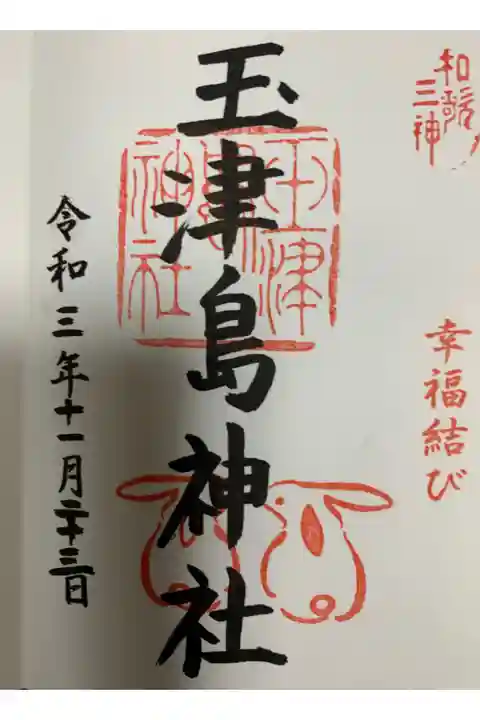 和歌
三神
幸福結び
玉津島神社
玉津
神社
令和三年十一月二十三日